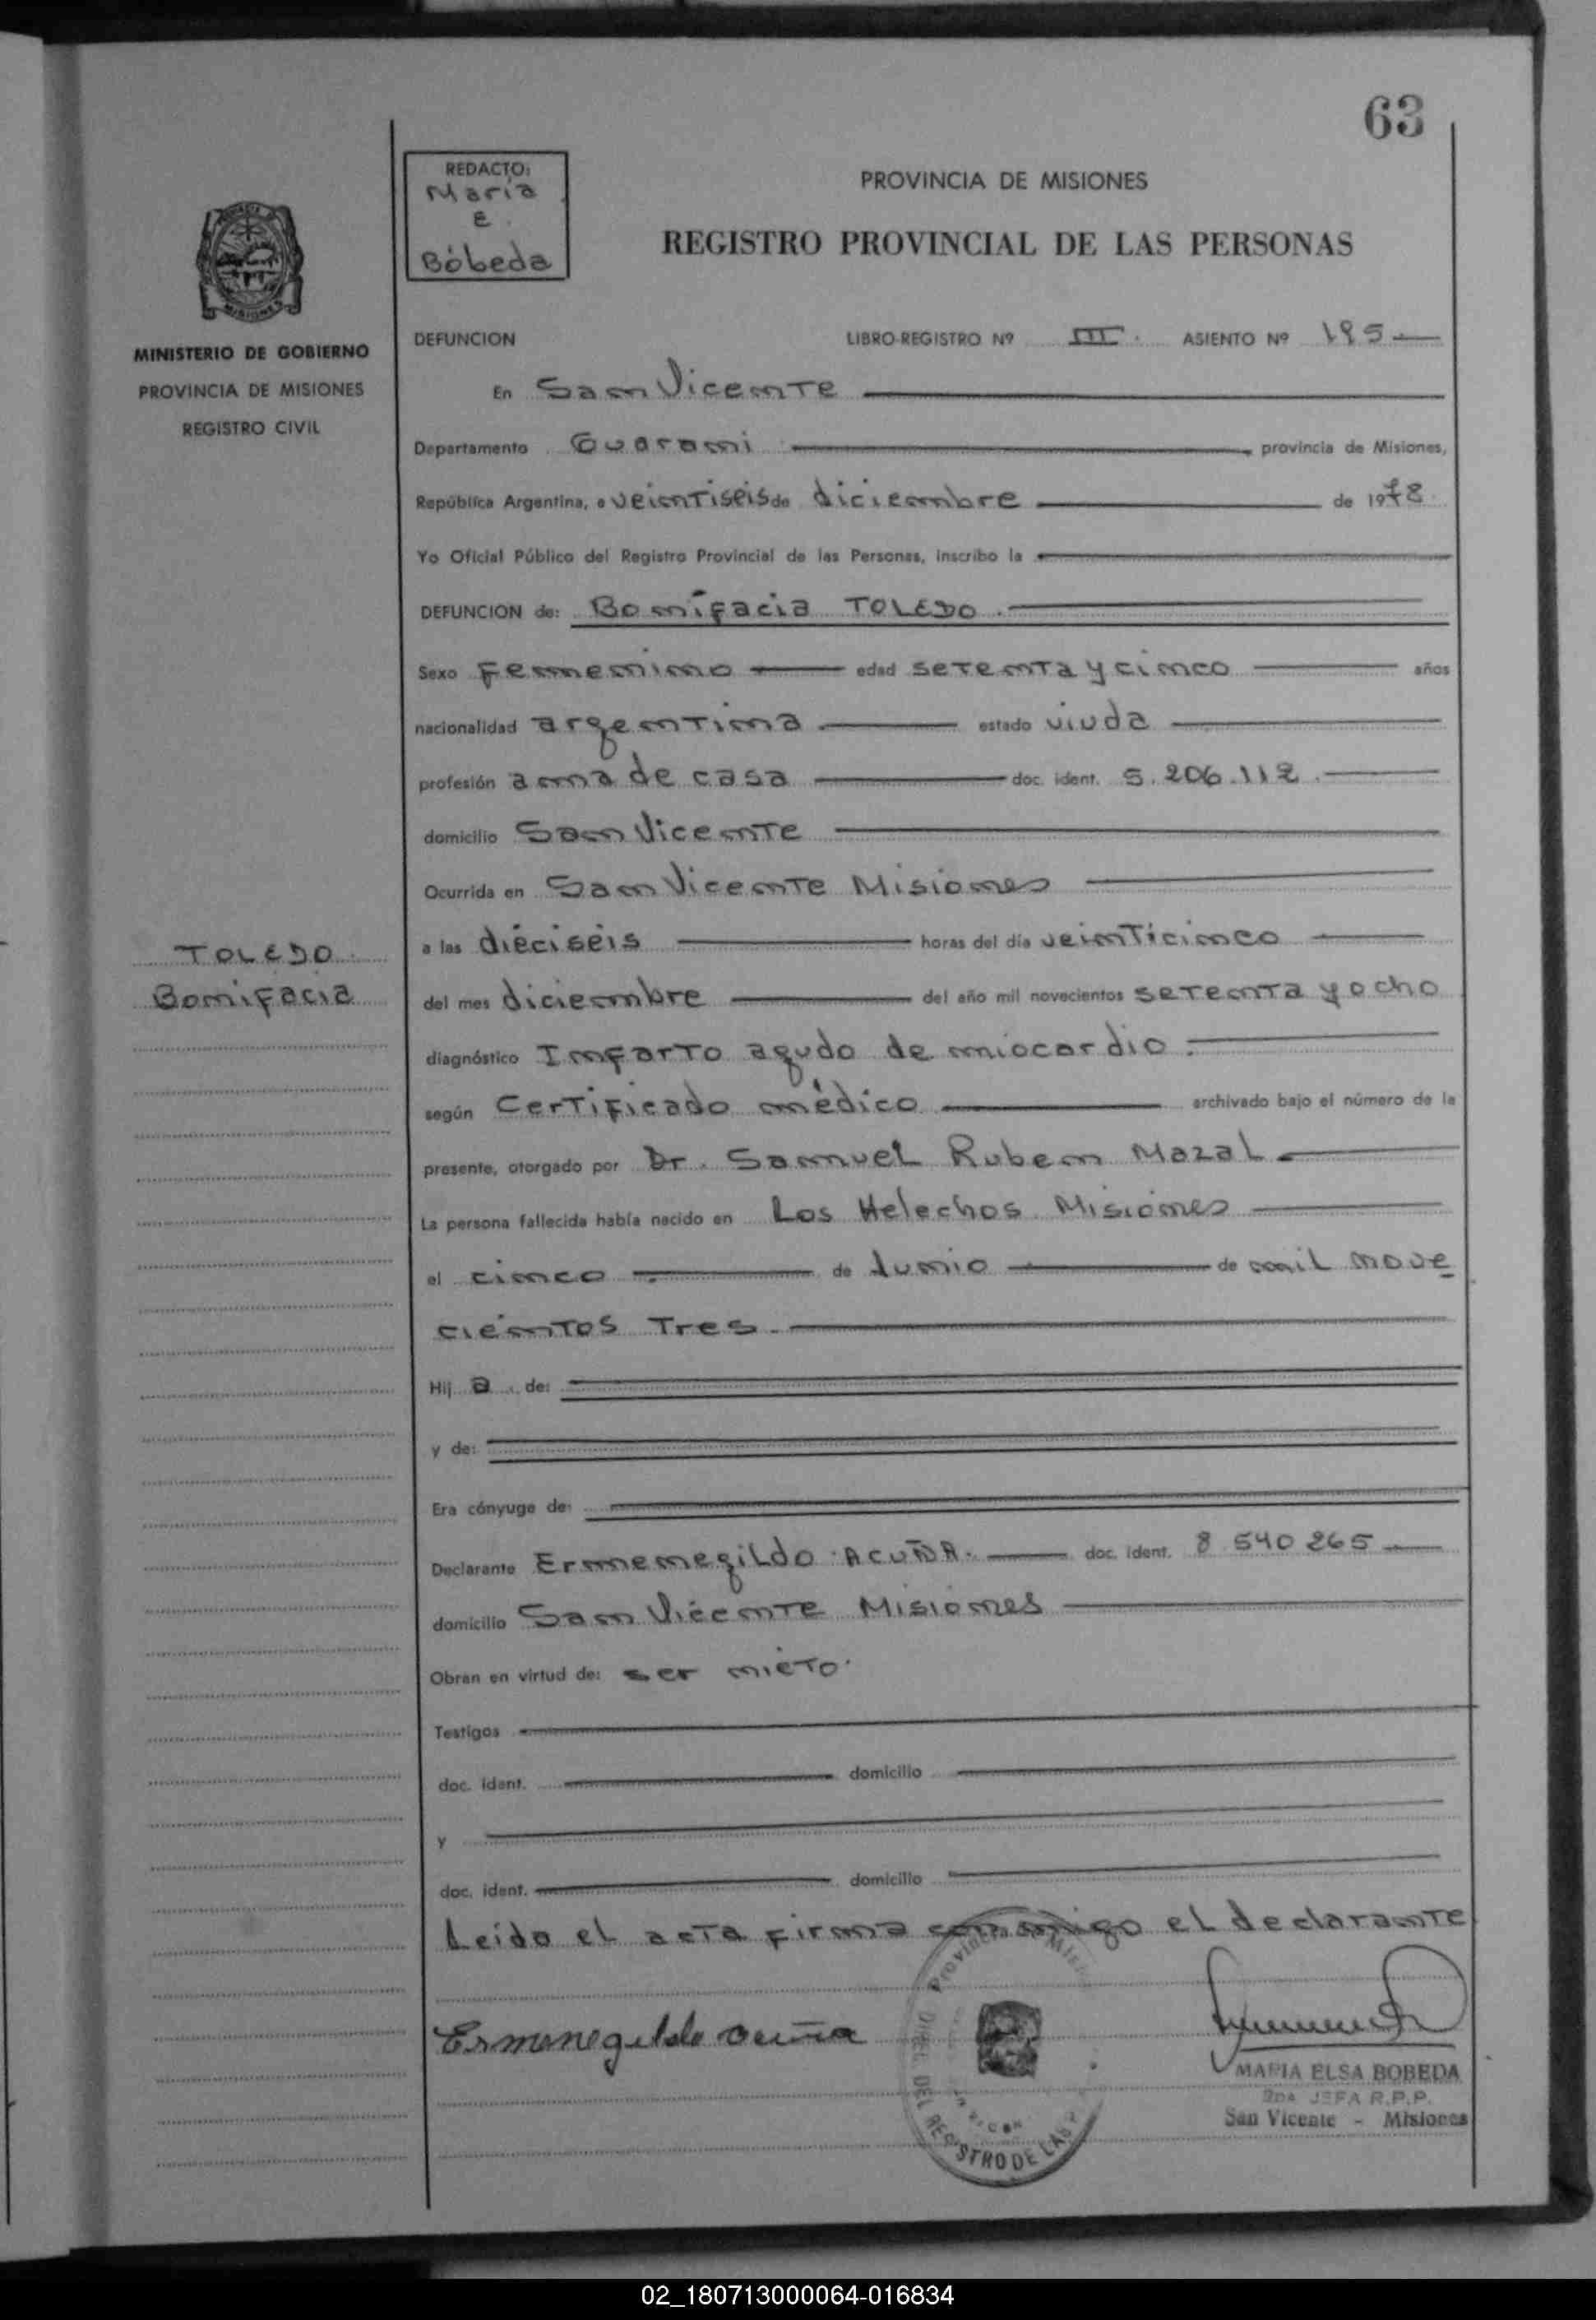 63
REDACTO:
María
E.
Bóbeda
PROVINCIA DE MISIONES
REGISTRO PROVINCIAL DE LAS PERSONAS
MISIONES
MINISTERIO DE GOBIERNO
PROVINCIA DE MISIONES
REGISTRO CIVIL
DEFUNCION LIBRO-REGISTRO Nº III. ASIENTO Nº 185
En San Vicente
Departamento Guarani, provincia de Misiones,
República Argentina, a veintiseis de diciembre de 1978.
Yo Oficial Público del Registro Provincial de las Personas, inscribo la
DEFUNCION de: Bonifacia TOLEDO.
Sexo femenino edad setenta y cinco años
nacionalidad argentina estado viuda
profesión ama de casa doc. ident. 5.206.112.
domicilio San Vicente
Ocurrida en San Vicente Misiones
a las dieciseis horas del día veinticinco
del mes diciembre del año mil novecientos setenta y ocho
diagnóstico Infarto agudo de miocardio.
según Certificado médico archivado bajo el número de la
presente, otorgado por Dr. Samuel Ruben Mazal
La persona fallecida había nacido en Los Helechos Misiones
el cinco de Junio de mil nove
cientos Tres.
Hij a de:
y de:
Era cónyuge de:
Declarante Ermenegildo ACUÑA. doc. ident. 8 540 265
domicilio San Vicente Misiones
Obran en virtud de: ser nieto.
Testigos
doc. ident. domicilio
y
doc. ident. domicilio
Leido el acta firma conmigo el declarante
TOLEDO.
Bonifacia
Ermenegildo acuña
MARIA ELSA BOBEDA
2DA JEFA R.P.P.
San Vicente - Misiones
02_180713000064-016834